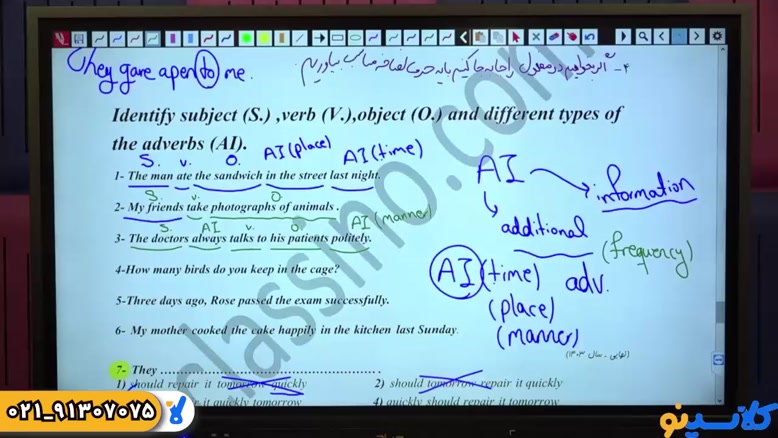 They gave a pen to me.
۴- اگر بخواهیم دو مفعول را جابه‌جا کنیم باید حرف اضافه مناسب بیاوریم
Identify subject (S.) ,verb (V.),object (O.) and different types of
the adverbs (AI).
S. v. O. AI (place) AI (time)
1- The man ate the sandwich in the street last night.
S. v. O
2- My friends take photographs of animals .
S. AI v. O. AI (manner)
3- The doctors always talks to his patients politely.
4-How many birds do you keep in the cage?
5-Three days ago, Rose passed the exam successfully.
6- My mother cooked the cake happily in the kitchen last Sunday.
(نهایی - سال ۱۴۰۳)
7- They
1) should repair it tomorrow quickly 2) should tomorrow repair it quickly
it quickly tomorrow 4) quickly should repair it tomorrow
AI
information
additional
(frequency)
AI (time) adv.
(place)
(manner)
classino.com
۰۲۱_۹۱۳۰۷۰۷۵
کلاسینو